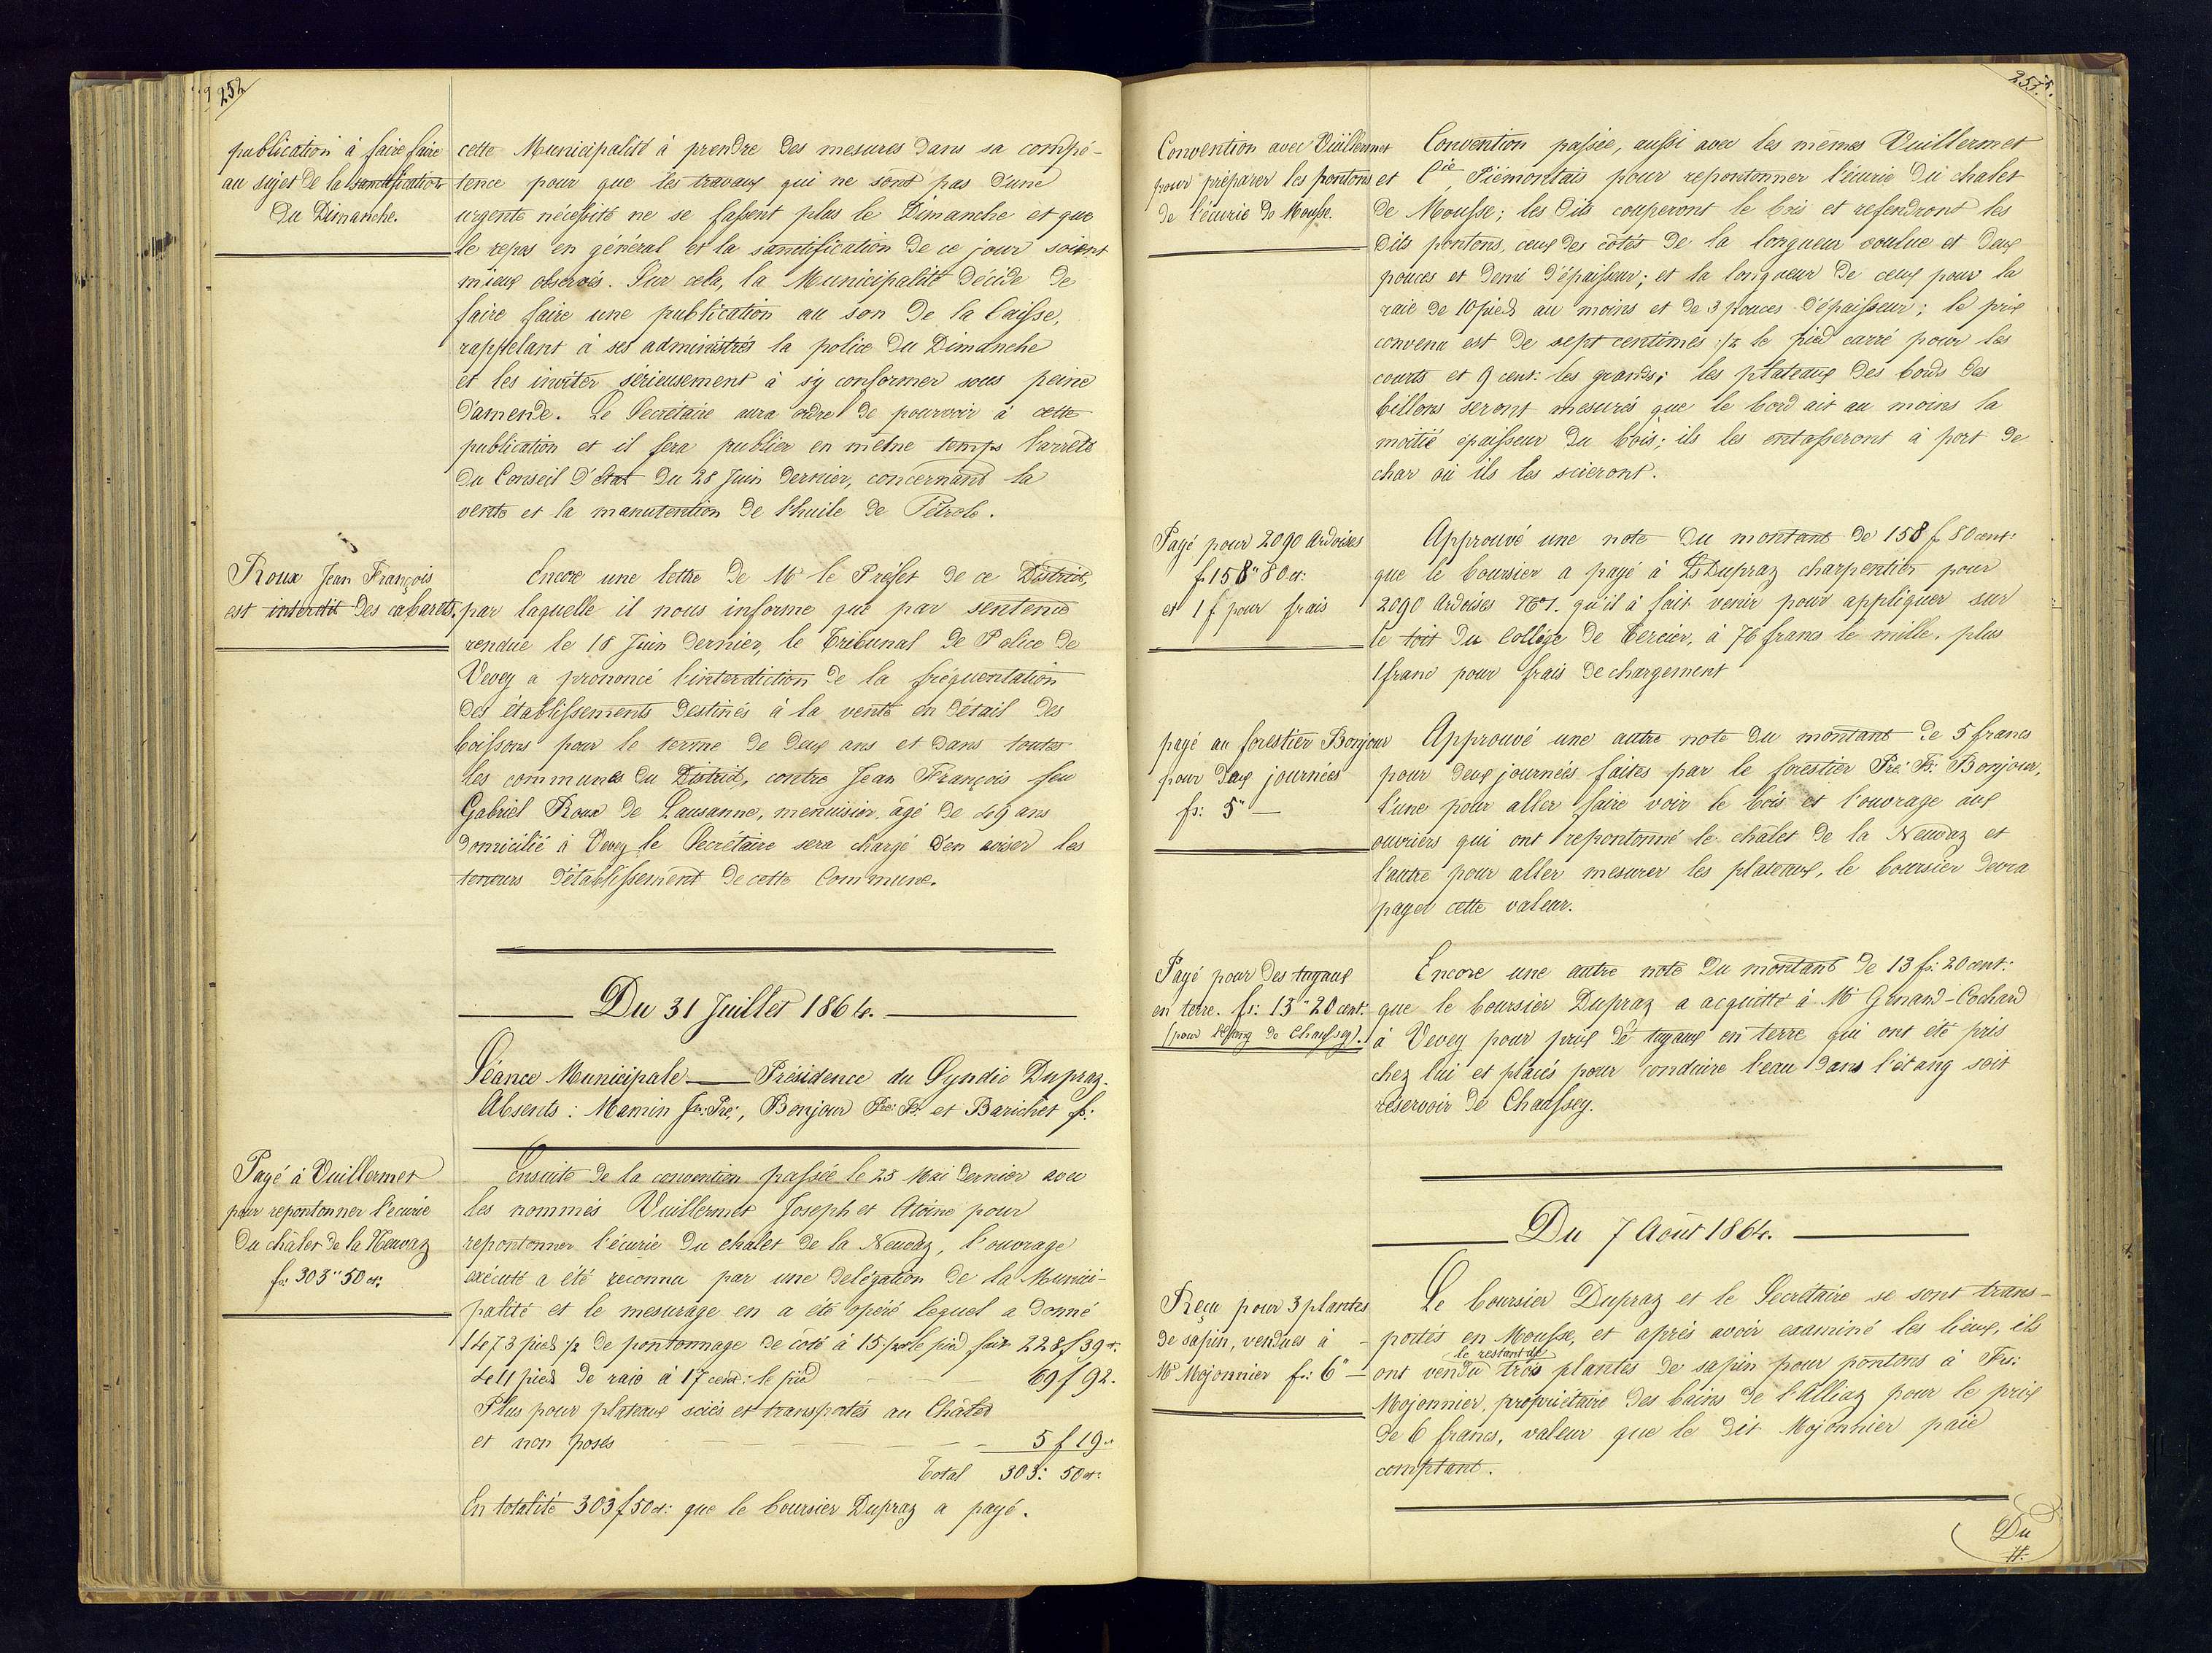 252
publication à faire faire
au sujet de la sanctification
du Dimanche.
cette Municipalité à prendre des mesures dans sa compé-
tence pour que les travaux qui ne sont pas d'une
urgente nécessité ne se fassent plus le Dimanche et que
le repos en général et la sanctification de ce jour soient
mieux observés. Sur cela, la Municipalité décide de
faire faire une publication au son de la Caisse,
rappelant à ses administrés la police du Dimanche
et les inviter sérieusement à s'y conformer sous peine
d'amende. Le Secrétaire aura ordre de pourvoir à cette
publication et il fera publier en même temps l'arrêté
du Conseil d'état du 28 Juin dernier, concernant la
vente et la manutention de l'huile de Pétrole.
Roux Jean François
est interdit des cabarets.
Encore une lettre de Mr le Préfet de ce District,
par laquelle il nous informe que par sentence
rendue le 18 Juin dernier, le Tribunal de Police de
Vevey a prononcé l'interdiction de la fréquentation
des établissements destinés à la vente en détail des
boissons pour le terme de deux ans et dans toutes
les communes du District, contre Jean François feu
Gabriel Roux de Lausanne, menuisier, âgé de 49 ans
domicilié à Vevey le Secrétaire sera chargé d'en aviser les
teneurs d'établissement de cette Commune.
Du 31 Juillet 1864.
Séance Municipale — Présidence du Syndic Dupraz.
Absents : Mamin Jn: Pre:, Bonjour Pre: Fs: et Barichet fs:
Payé à Vuillermet
pour repontonner l'écurie
du châlet de la Neuvaz
fs: 303" 50 ct:
Ensuite de la convention passée le 25 Mai dernier avec
les nommés Vuillermet Joseph et Antoine pour
repontonner l'écurie du chalet de la Neuvaz, l'ouvrage
exécuté a été reconnu par une délégation de la Munici-
palité et le mesurage en a été opéré lequel a donné
1473 pieds ½ de pontonnage de côté à 15 ½ ct le pied fait 228 f 39 ct.
411 pieds de raie à 17 cent: le pied 69 f 92.
Plus pour plateaux sciés et transportés au Châlet
et non posés 5 f 19 ct
Total 303: 50 ct:
En totalité 303 f 50 ct: que le boursier Dupraz a payé.
253.
Convention avec Vuillermet
pour préparer les pontons
de l'écurie de Mousse.
Convention passée, aussi avec les mêmes Vuillermet
et Cie, Piémontais pour repontonner l'écurie du chalet
de Mousse; les dits couperont le bois et refendront les
dits pontons, ceux des côtés de la longueur voulue et deux
pouces et demi d'épaisseur; et la longueur de ceux pour la
raie de 10 pieds au moins et de 3 pouces d'épaisseur; le prix
convenu est de sept centimes ½ le pied carré pour les
courts et 9 cent: les grands; les plateaux des bords des
billons seront mesurés que le bord ait au moins la
moitié epaisseur du bois; ils les entasseront à port de
char où ils les scieront.
Payé pour 2090 Ardoises
f 158" 80 ct:
et 1 f pour frais
Approuvé une note du montant de 158 f 80 cent:
que le boursier a payé à Ls Dupraz charpentier pour
2090 Ardoises No 1. qu'il à fait venir pour appliquer sur
le toit du Collège de Tercier, à 76 francs le mille, plus
1 franc pour frais de chargement
payé au forestier Bonjour
pour deux journées
fs: 5" —
Approuvé une autre note du montant de 5 francs
pour deux journées faites par le forestier Pre: Fs: Bonjour,
l'une pour aller faire voir le bois et l'ouvrage aux
ouvriers qui ont repontonné le châlet de la Neuvaz et
l'autre pour aller mesurer les plateaux, le boursier devra
payer cette valeur.
Payé pour des tuyaux
en terre. fs: 13" 20 cent:
(pour l'étang de Chaussey).
Encore une autre note du montant de 13 fs: 20 cent:
que le boursier Dupraz a acquitté à Mr Genand-Cochard
à Vevey pour prix de tuyaux en terre qui ont été pris
chez lui et placés pour conduire l'eau dans l'étang soit
réservoir de Chaussey.
Du 7 Août 1864.
Reçu pour 3 plantes
de sapin, vendues à
Mr Mojonnier fs: 6" —
Le boursier Dupraz et le Secrétaire se sont trans-
portés en Mousse, et après avoir examiné les lieux, ils
le restant de
ont vendu trois plantes de sapin pour pontons à Frs:
Mojonnier, propriétaire des bains de l'Alliaz pour le prix
de 6 francs, valeur que le dit Mojonnier paie
comptant.
Du